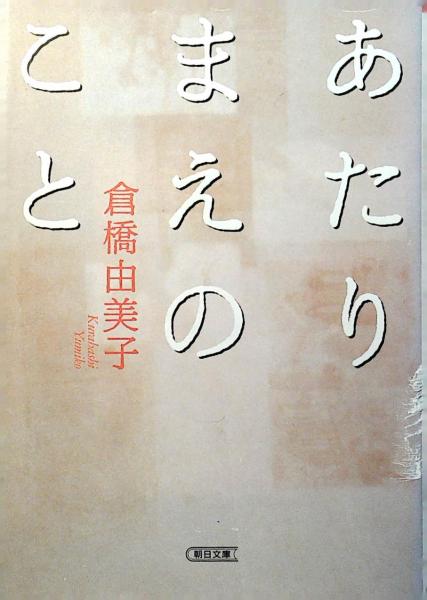 あたり
まえの
こと
倉橋由美子
Kurahashi
Yumiko
朝日文庫